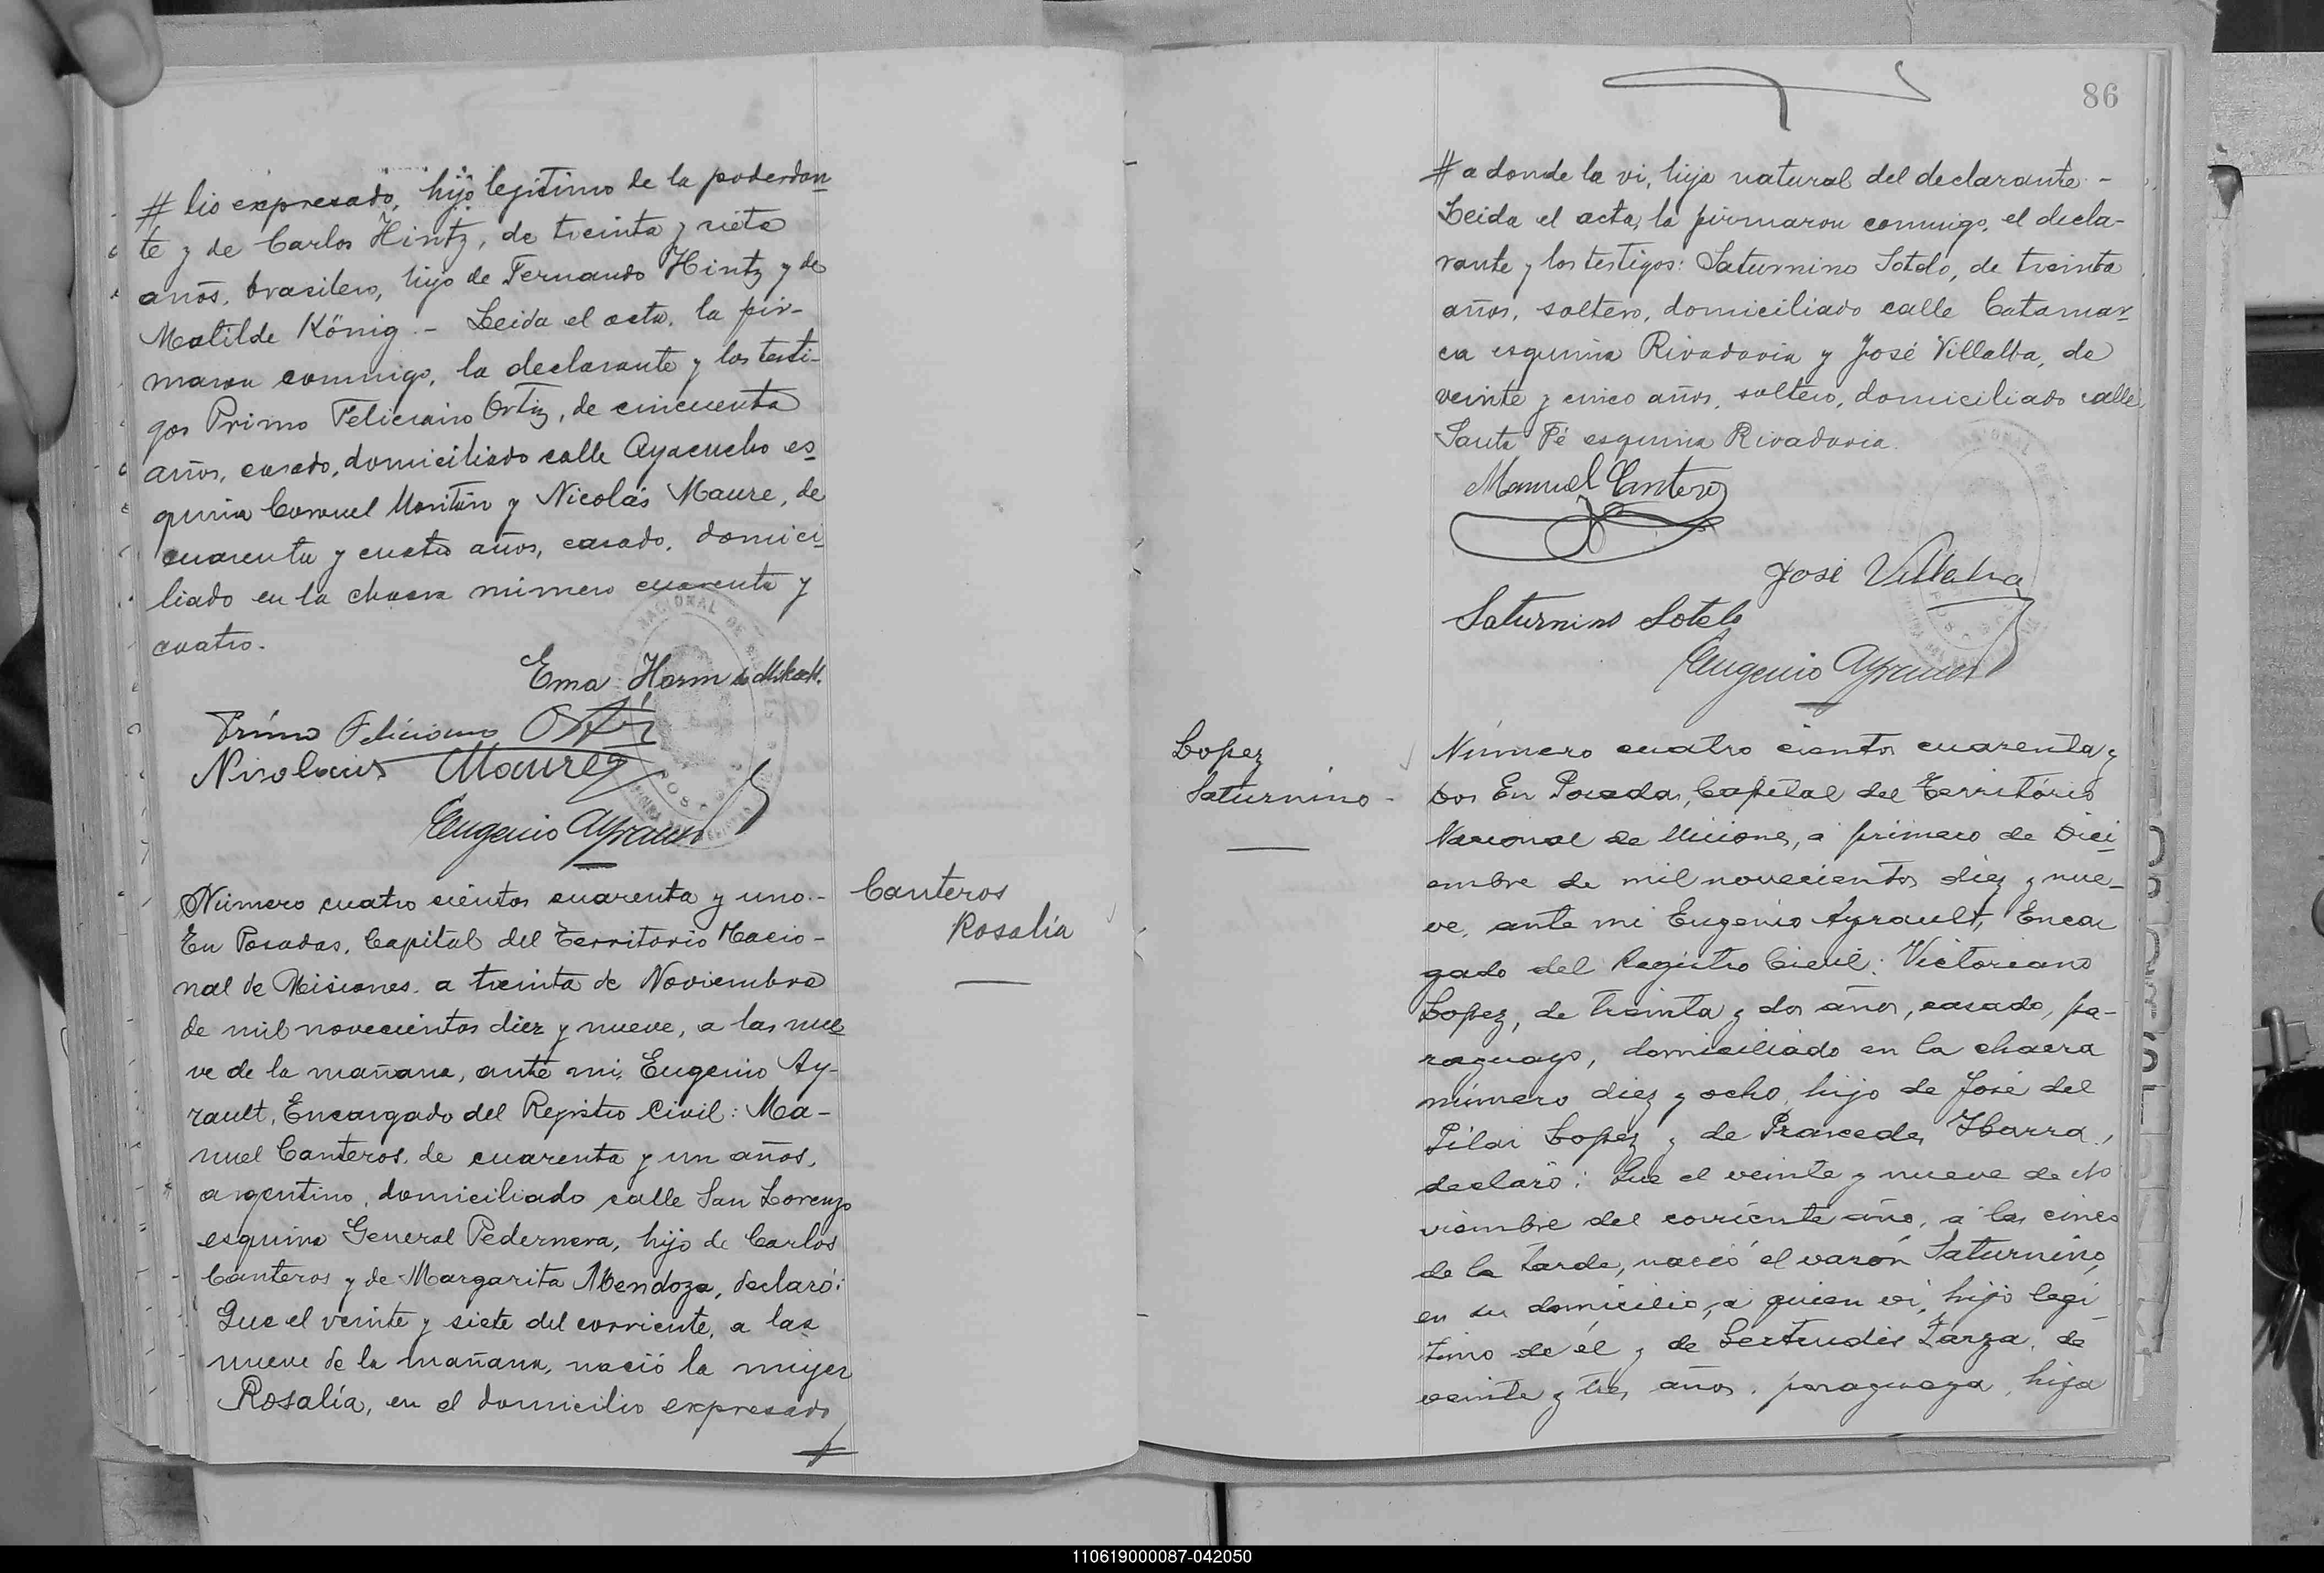 # lio expresado, hijo legitimo de la poderdan
te y de Carlos Hintz, de treinta y siete
años, brasilero, hijo de Fernando Hintz y de
Matilde König. - Leida el acta, la fir-
maron conmigo, la declarante y los testi-
gos Primo Feliciano Ortiz, de cincuenta
años, casado, domiciliado calle Ayacucho es
quina Coronel Moritán y Nicolás Maure, de
cuarenta y cuatro años, casado, domici
liado en la chacra número cuarenta y
cuatro.
Ema Horm de
Primo Feliciano Ortiz
Nicolas Maure
Eugenio Ayrault
Número cuatro cientos cuarenta y uno.-
En Posadas, Capital del Territorio Nacio-
nal de Misiones, a treinta de Noviembre
de mil novecientos diez y nueve, a las nue
ve de la mañana, ante mi, Eugenio Ay-
rault, Encargado del Registro Civil: Ma-
nuel Canteros, de cuarenta y un años,
argentino, domiciliado calle San Lorenzo
esquina General Pedernera, hijo de Carlos
Canteros y de Margarita Mendoza, declaró:
Que el veinte y siete del corriente, a las
nueve de la mañana, nació la mujer
Rosalía, en el domicilio expresado
Canteros
Rosalía
86
# a donde la vi, hija natural del declarante -
Leida el acta, la firmaron conmigo, el decla-
rante y los testigos: Saturnino Sotelo, de treinta
años, soltero, domiciliado calle Catamar
ca esquina Rivadavia y José Villalba, de
veinte y cinco años, soltero, domiciliado calle
Santa Fé esquina Rivadavia.
Manuel Cantero
José Villalva
Saturnino Sotelo
Eugenio Ayrault
Lopez
Saturnino -
Número cuatro cientos cuarenta y
dos En Posadas, Capital del Territorio
Nacional de Misiones, a primero de Dici
embre de mil novecientos diez y nue-
ve, ante mi Eugenio Ayrault, Encar
gado del Registro Civil: Victoriano
Lopez, de treinta y dos años, casado, pa-
raguayo, domiciliado en la chacra
número diez y ocho, hijo de José del
Pilar Lopez y de Praxedes Ybarra,
declaró: Que el veinte y nueve de No
viembre del corriente año, a las cinco
de la tarde, nació el varón Saturnino,
en su domicilio, a quien vi, hijo legi
timo de él y de Gertrudis Zarza, de
veinte y tres años, paraguaya, hija
110619000087-042050